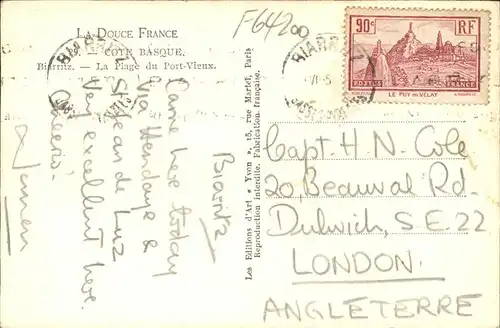 LA DOUCE FRANCE
29. — CÔTE BASQUE.
Biarritz. — La Plage du Port-Vieux.
F64200
Biarritz
Came here today
via Hendaye &
St Jean de Luz
Very excellent here.
Les Editions d'Art « Yvon », 15, rue Martel, Paris
Reproduction interdite. Fabrication française.
90c
RF
POSTES
FRANCE
LE PUY-EN-VELAY
BIARRITZ
BIARRITZ
Capt. H. N. Cole
20, Beauval Rd.
Dulwich, S.E. 22
LONDON.
ANGLETERRE